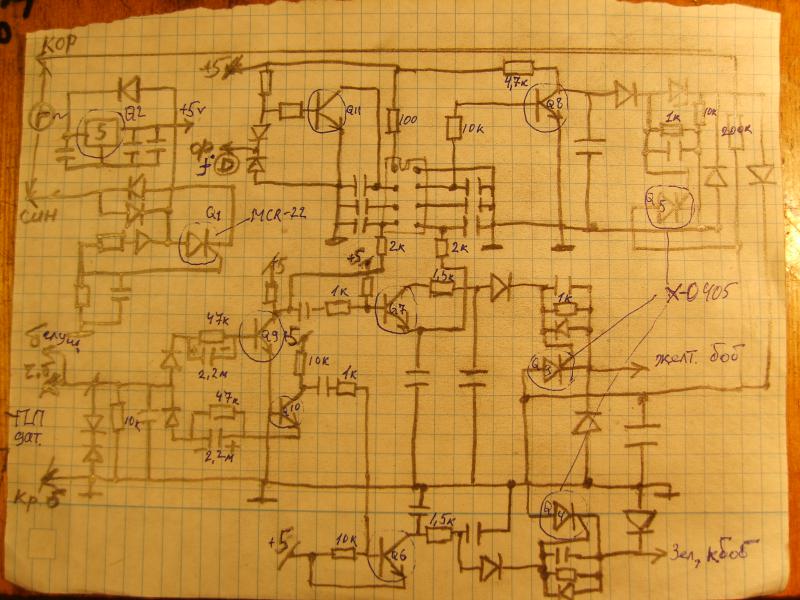 КОР
+5v
Q11
4,7к
Q8
Q2
5
+5v
100
10к
1к
10к
200к
D
син
Q1
MCR-22
Q5
2к
2к
+5
+5
1к
1,5к
Q7
X-0405
1к
47к
Q9
+5
Q3
желт. боб
2,2м
10к
1к
47к
Q10
10к
ПП
дат.
2,2м
Кр. б
Q4
1,5к
+5
10к
Q6
Зел, кбоб